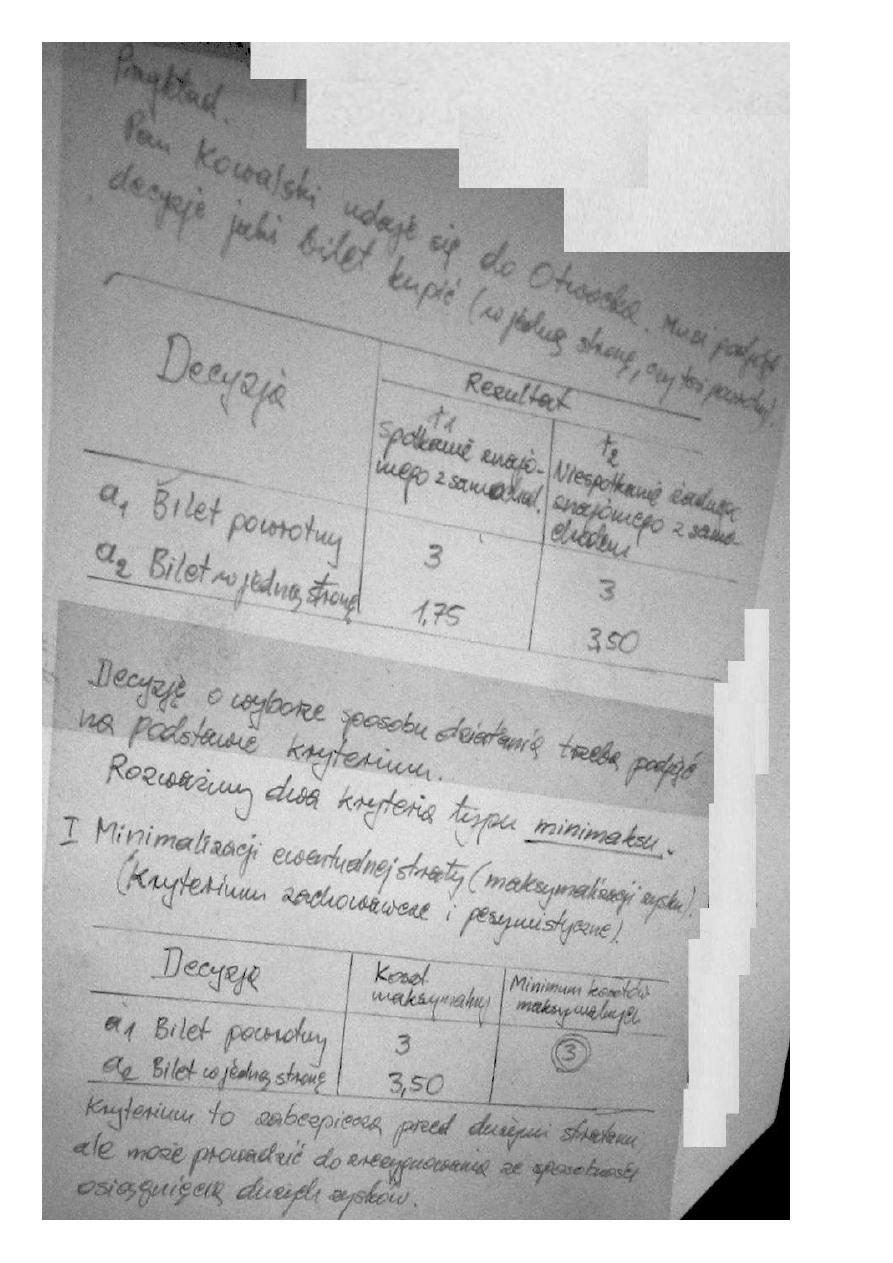 Przykład.
Pan Kowalski udaje się do Otwocka. Musi podjąć
decyzję jaki bilet kupić (w jedną stronę, czy też powrotny).
Decyzja
Rezultat
t1
t2
Spotkanie znajo-
mego z samochod.
Niespotkanie żadnego
znajomego z samo-
chodem
a1 Bilet powrotny
3
3
a2 Bilet w jedną stronę
1,75
3,50
Decyzję o wyborze sposobu działania trzeba podjąć
na podstawie kryterium.
Rozważmy dwa kryteria typu minimaksu.
I Minimalizacji ewentualnej straty (maksymalizacji zysku).
(Kryterium zachowawcze i pesymistyczne).
Decyzja
Koszt
maksymalny
Minimum kosztów
maksymalnych
a1 Bilet powrotny
3
3
a2 Bilet w jedną stronę
3,50
Kryterium to zabezpiecza przed dużymi stratami,
ale może prowadzić do zrezygnowania ze sposobności
osiągnięcia dużych zysków.